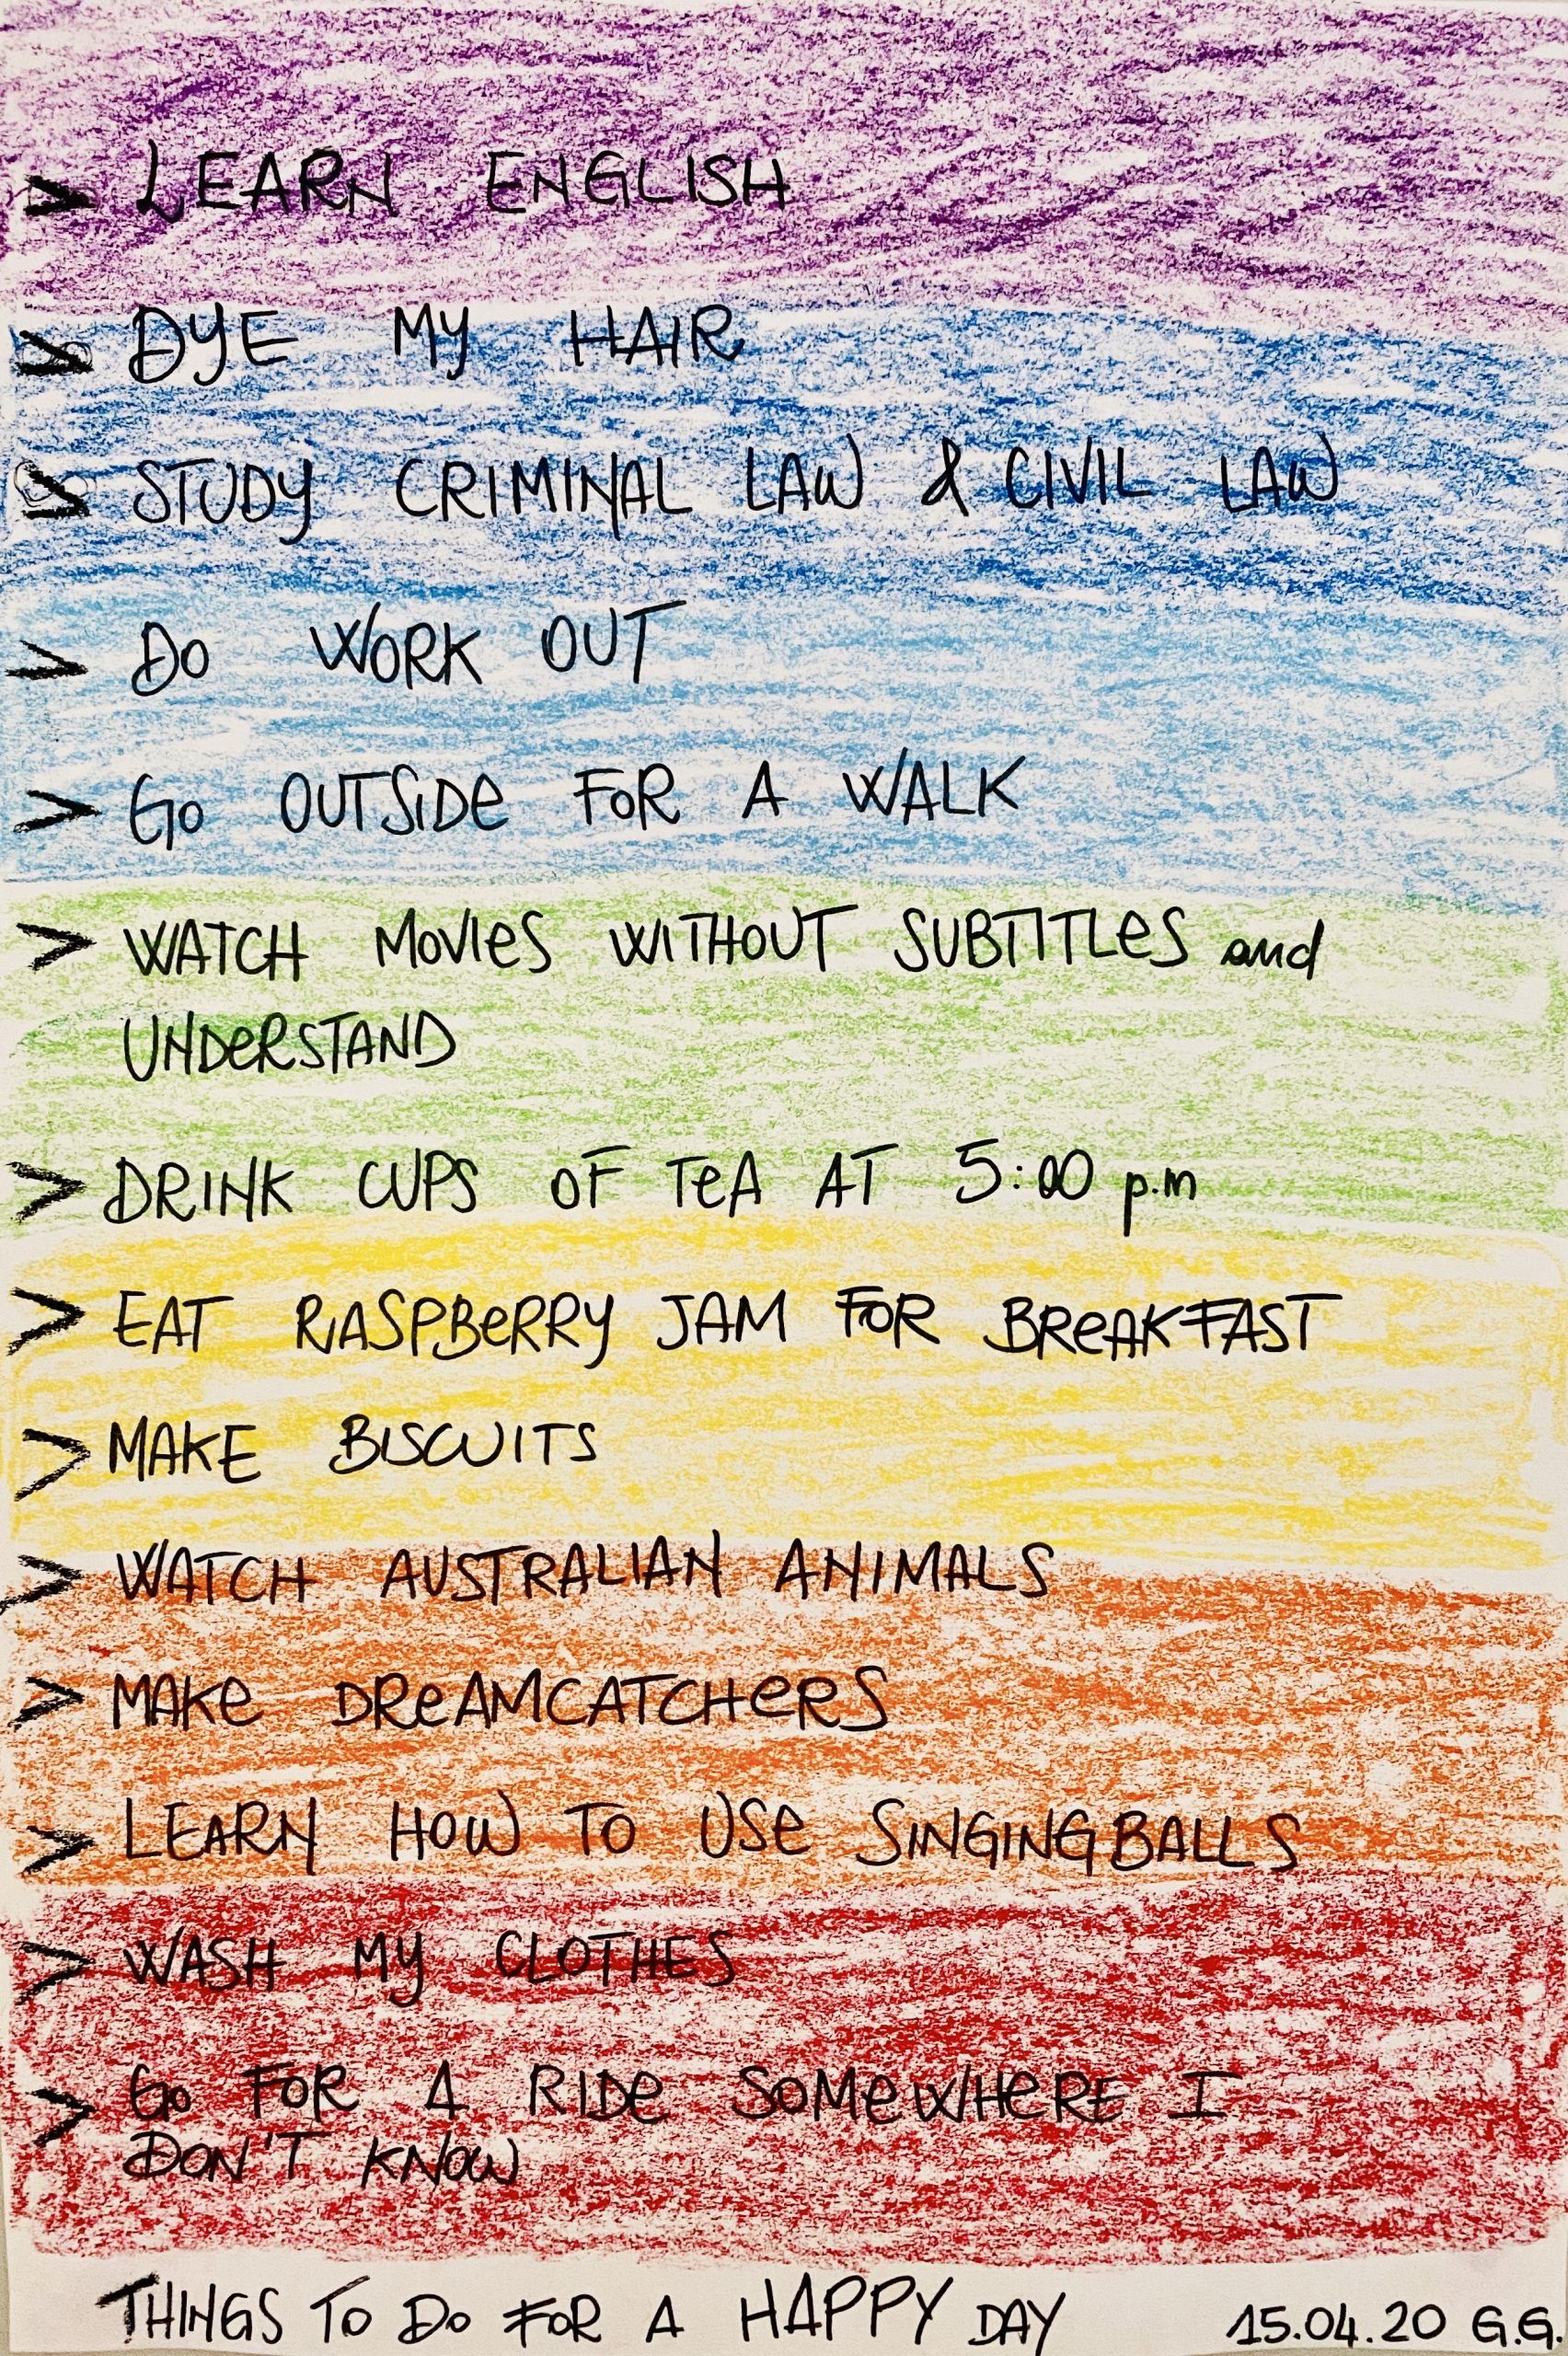 > LEARN ENGLISH
> DYE MY HAIR
> STUDY CRIMINAL LAW & CIVIL LAW
> DO WORK OUT
> GO OUTSIDE FOR A WALK
> WATCH MOVIES WITHOUT SUBTITLES and
UNDERSTAND
> DRINK CUPS OF TEA AT 5:00 p.m
> EAT RASPBERRY JAM FOR BREAKFAST
> MAKE BISCUITS
> WATCH AUSTRALIAN ANIMALS
> MAKE DREAMCATCHERS
> LEARN HOW TO USE SINGING BALLS
> WASH MY CLOTHES
> GO FOR A RIDE SOMEWHERE I
DON'T KNOW
THINGS TO DO FOR A HAPPY DAY 15.04.20 G.G.